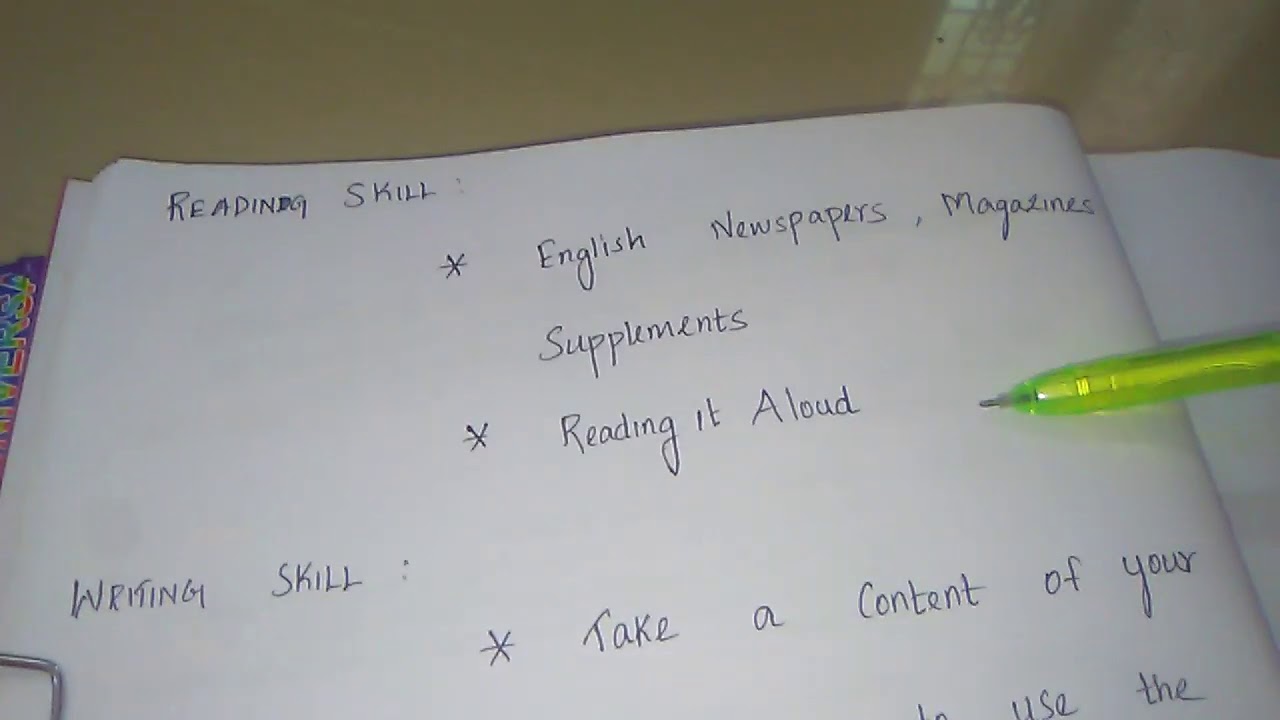 READING SKILL :
* English Newspapers , Magazines
Supplements
* Reading it Aloud
WRITING SKILL :
* Take a Content of your
use the